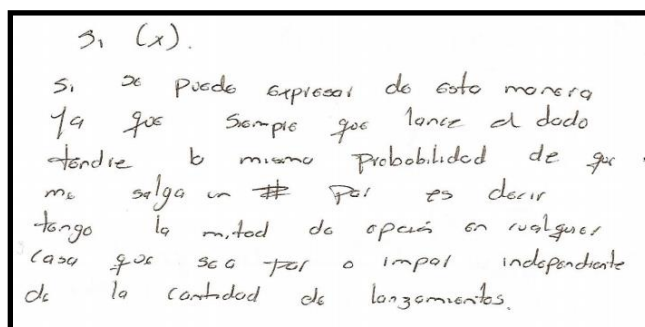 Si (x).
Si se puede expresar de esta manera
ya que siempre que lance el dado
tendre la misma probabilidad de que
me salga un # par es decir
tengo la mitad de opción en cualquier
casa que sea par o impar independiente
de la cantidad de lanzamientos.